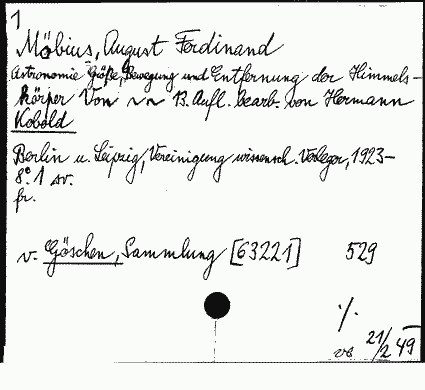 1
Möbius, August Ferdinand
Astronomie Größe, Bewegung und Entfernung der Himmels-
körper Von 13. Aufl. bearb. von Hermann
Kobold
Berlin u. Leipzig, Vereinigung wissensch. Verleger, 1923-
8° 1
fr.
v. Göschen, Sammlung [63221] 529
./.
21/2 49